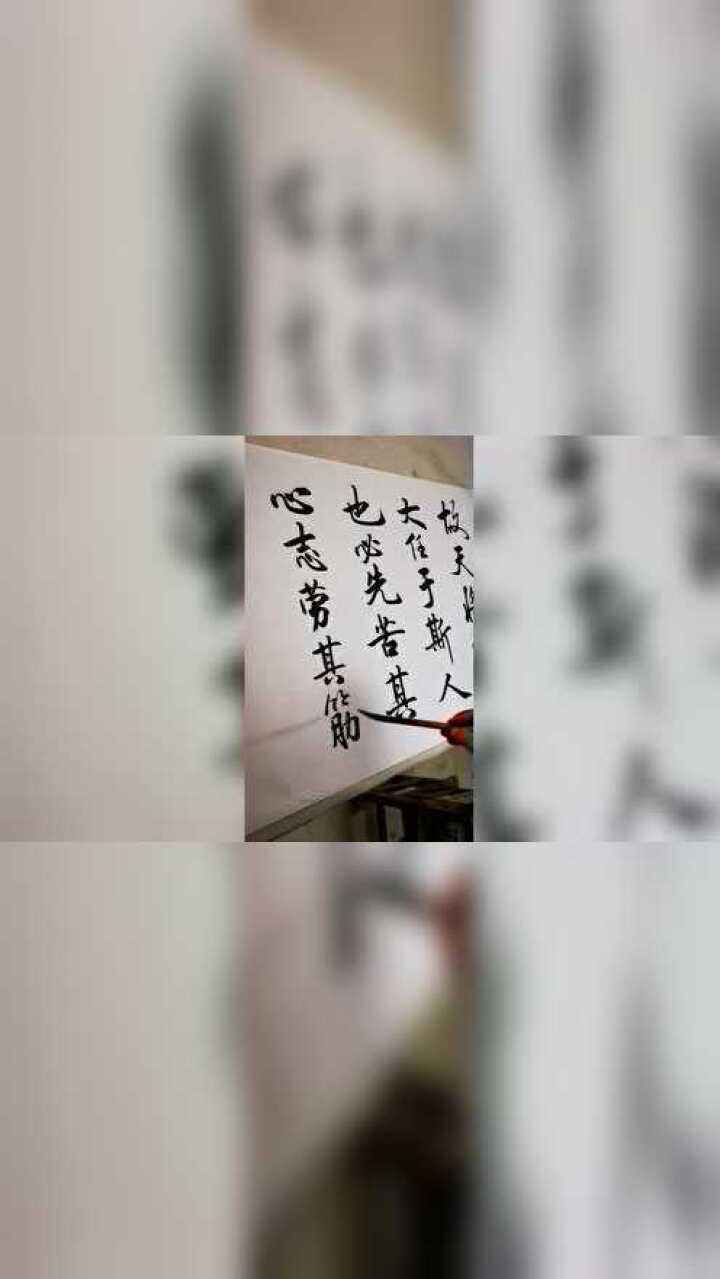 故天将
大任于斯人
也必先苦其
心志劳其筋